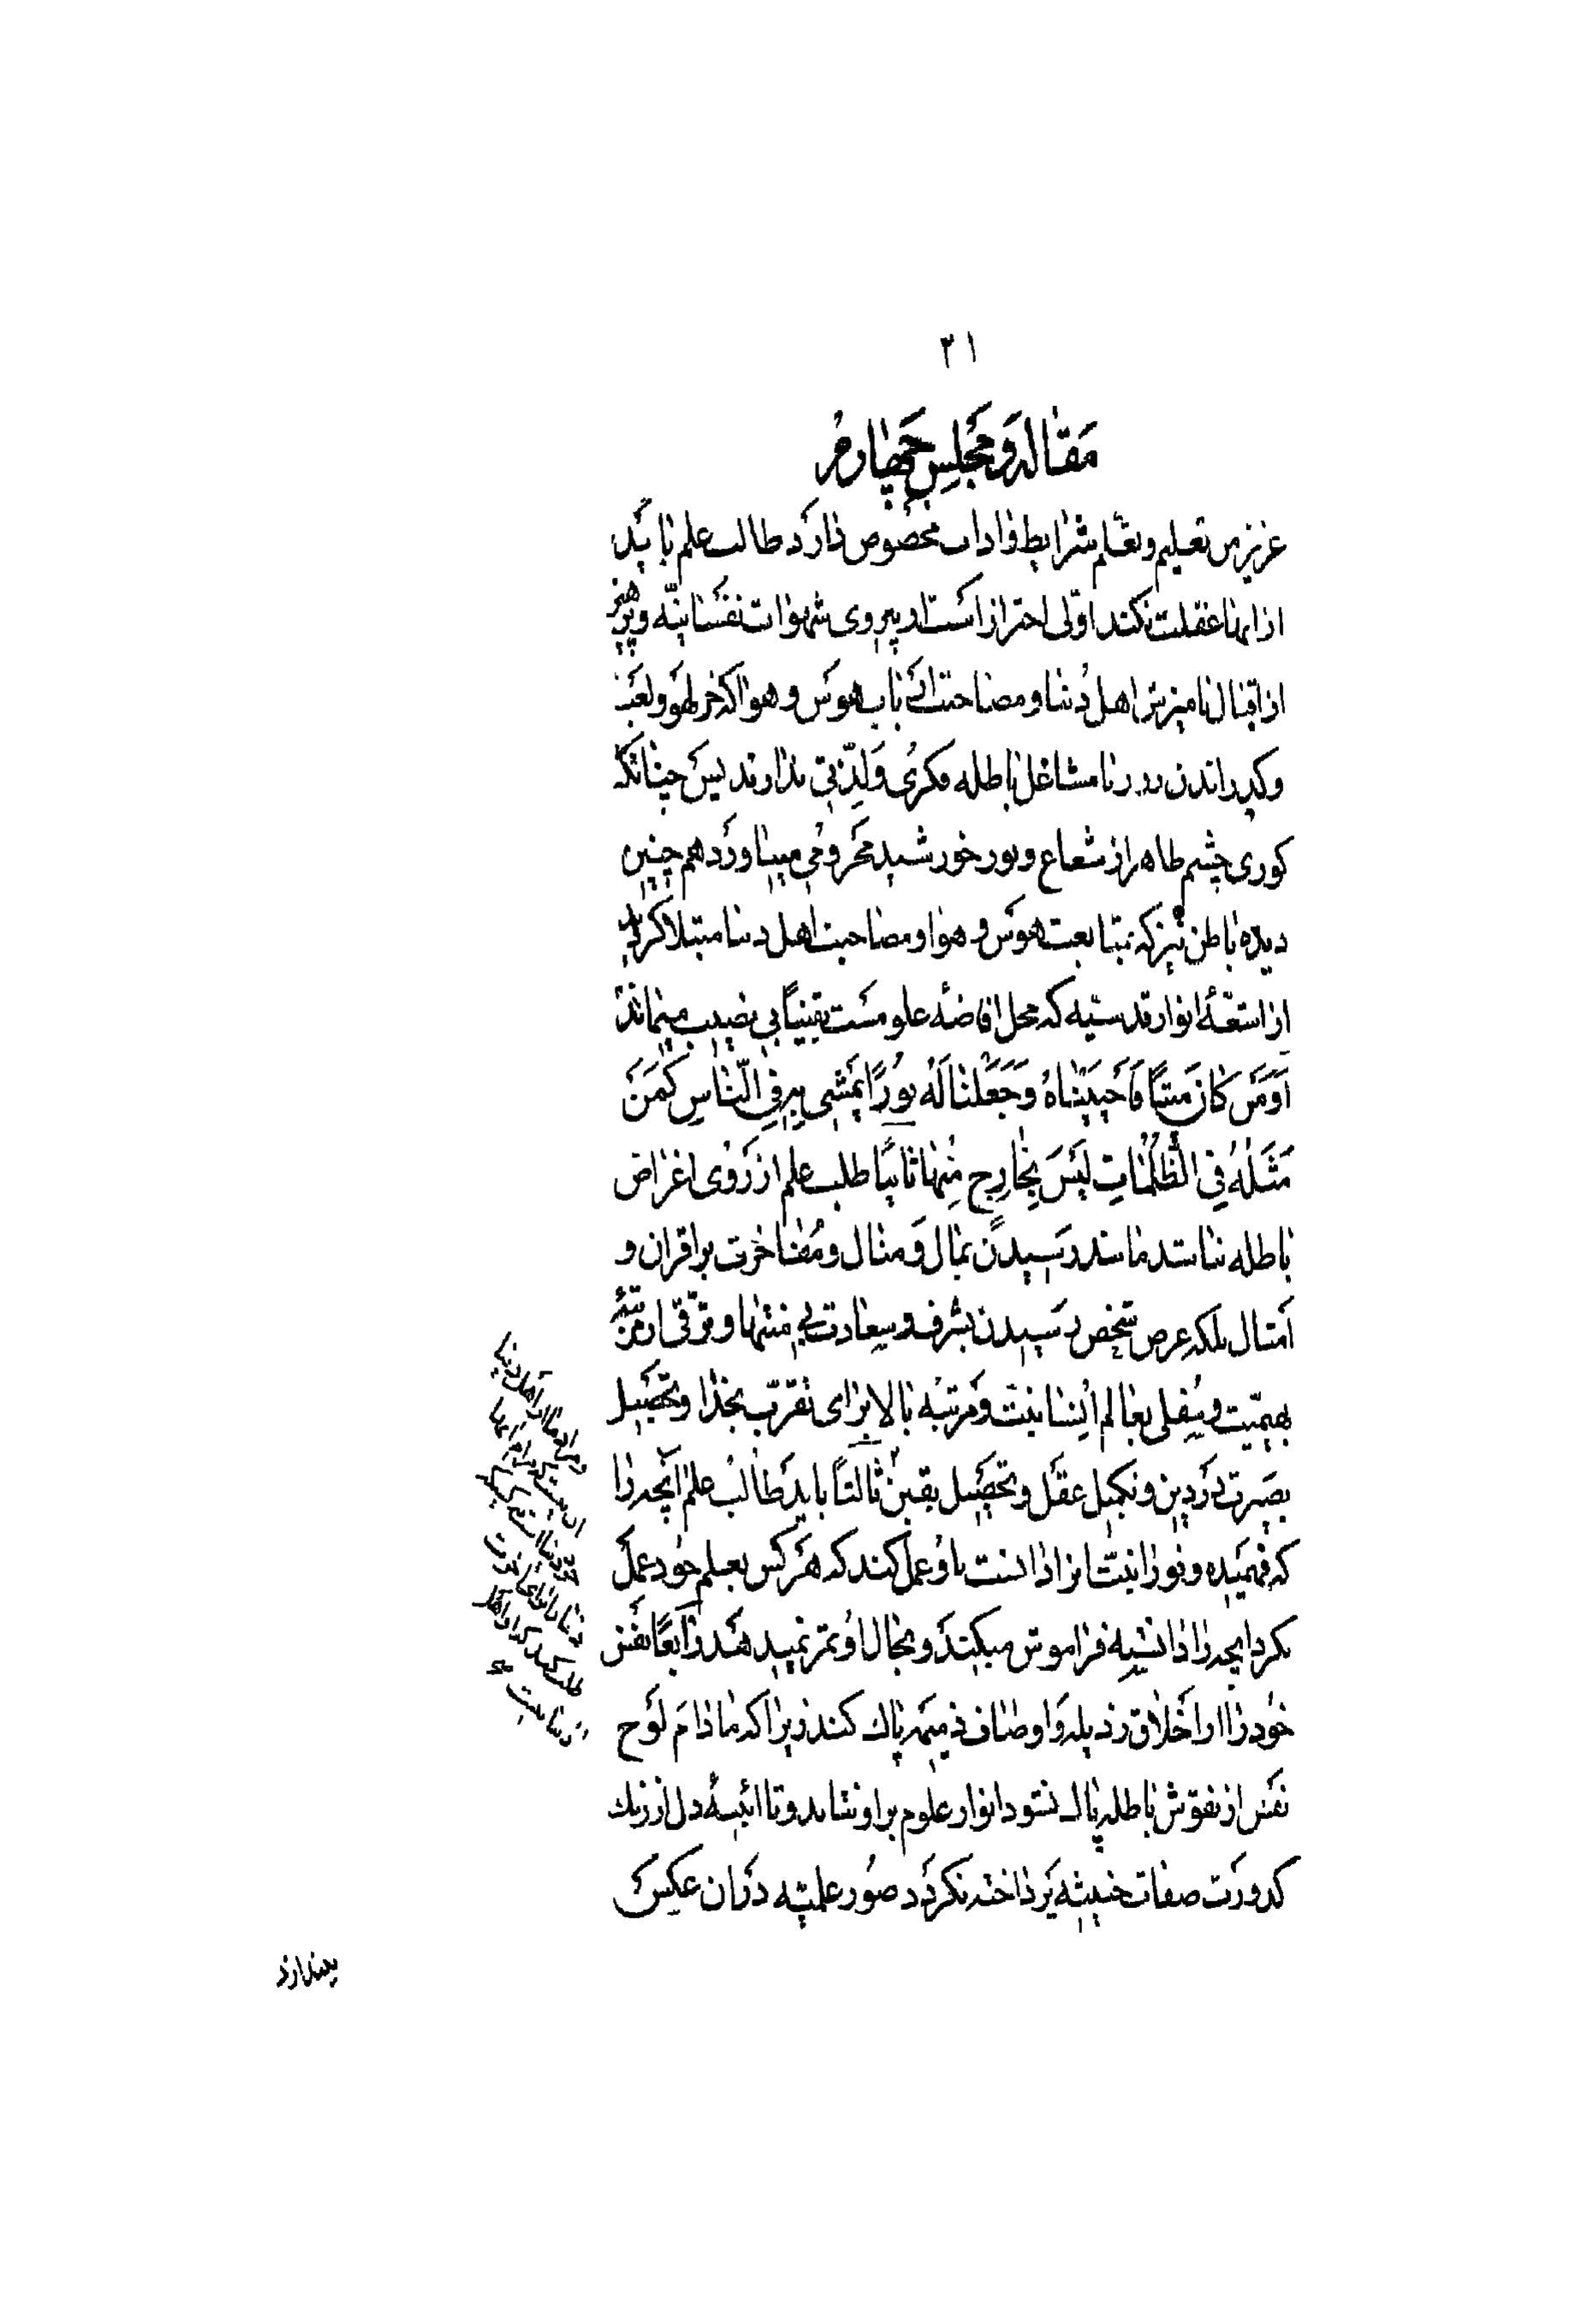 ۳۱
مقاله و مجلس چهارم
عزیز من تعلیم و تعلّم شرایط و اداب مخصوص دارد طالب علم باید
از انها غفلت نکند اوّلی احتراز است از پیروی شهوات نفسانیّه و پرهیز
از اقبال بامیزش اهل دنیا و مصاحبت ارباب هوس و هوا که جز لهو و لعب
و گذراندن روز با مشاغل باطله فکری و لذّتی ندارند پس چنانکه
کوری چشم ظاهر از شعاع و نور خورشید محرومی میاورد هم چنین
دیده باطن نیز که بمتابعت هوس و هوا و مصاحبت اهل دنیا مبتلا کردید
از اشعّهٔ انوار قدسیّه که محل افاضهٔ علومست یقیناً بی نصیب میماند
اَوَمَن کانَ مَیتاً فَأَحیَیناهُ وَجَعَلنا لَهُ نوُراً یَمشی بِهِ فِی النّاسِ کَمَن
مَثَلُهُ فِی الظُّلُماتِ لَیسَ بِخارِجٍ مِنها ثانیاً طلب علم از روی اغراض
باطله نباشد مانند رسیدن بمال و منال و مفاخرت بر اقران و
امثال بلکه غرض شخص رسیدن بشرف و سعادت بی منتها و ترقّی از مرتبهٔ
بهیمیّت و سفلی بعالم انسانیت و مرتبه بالا برای تقرّب بخدا و تحصیل
بصیرت در دین و تکمیل عقل و تحصیل یقین ثالثاً باید طالب علم انچه را
که فهمیده و نورانیّت انرا دانست باو عمل کند که هر کس بعلم خود عمل
نکرد انچه را دانسته فراموش میکند و بحال او ثمر نمیدهد رابعاً نفس
خود را از اخلاق رذیله و اوصاف ذمیمه پاک کند زیرا که مادام لوح
نفس از نقوش باطله پاک نشود انوار علوم بر او نتابد و تا ائینهٔ دل از زنک
کدورت صفات خبیثه پرداخته نکردد صور علمیّه در ان عکس